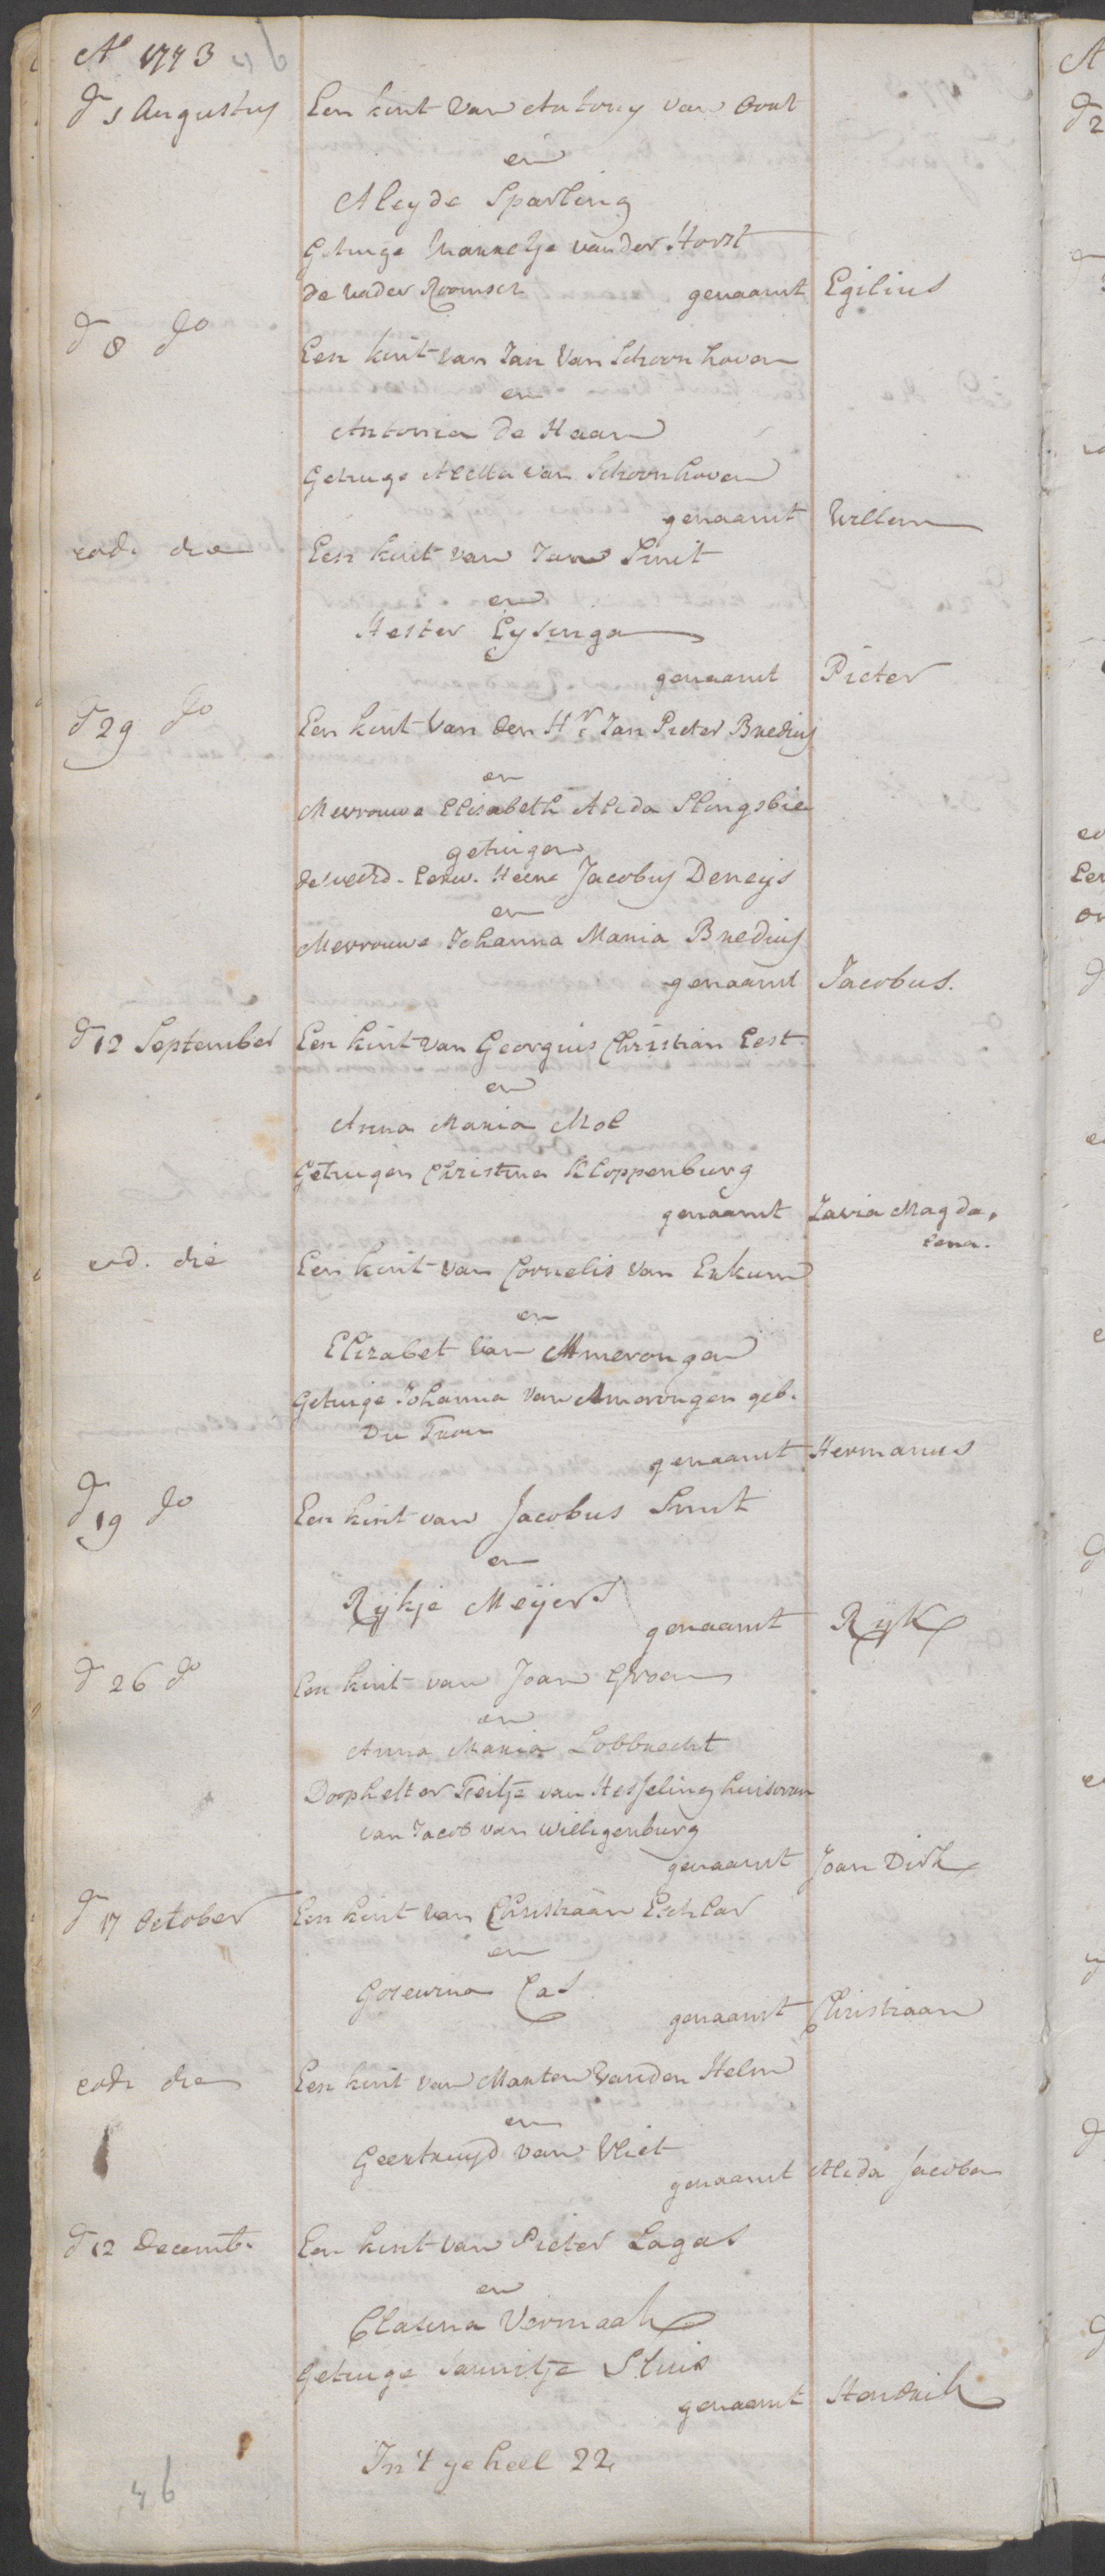 Ao 1773
d 1 Augustus Een kint van Antony van Oort
en
Aleyde Sparling
Getuige Nannetje van der Horst
de vader Roomsch genaamt Egilius
d 8 do
Een kint van Jan Van Schoonhoven
en
Antonia de Haan
Getuige Aletta van Schoonhoven
genaamt Willem
eod. die Een kint van Jan Smit
en
Hester Eysinga
genaamt Pieter
d 29 do Een kint van den Hr Jan Pieter Bredius
en
Mevrouwe Elisabeth Alida Slingsbie
getuigen
de weled. Eerw. Heere Jacobus Deneijs
en
Mevrouwe Johanna Maria Bredius
genaamt Jacobus.
d 12 September Een kint van Georgius Christian Eest
en
Anna Maria Mol
Getuigen Christina Kloppenburg
genaamt Maria Magda,
lena.
eod. die Een kint van Cornelis van Enkum
en
Elizabet van Amerongen
Getuige Johanna van Amerongen geb.
Du Four
genaamt Hermanus
d 19 do Een kint van Jacobus Smit
en
Rijkje Meijers
genaamt Rijk
d 26 do Een kint van Joan Groen
en
Anna Maria Lobbrecht
Doophelster Feitje van Hesseling huisvrou
van Jacob van Willigenburg
genaamt Joan Dirk
d 17 October Een kint van Christiaan Eschlar
en
Goseurina Cas
genaamt Christiaan
eod. die Een kint van Marten Van den Helm
en
Geertruyd van Vliet
genaamt Alida Jacoba
d 12 Decemb. Een kint van Pieter Lagas
en
Clasina Vermaak
Getuige Jannitje Sluis
genaamt Hendrik
In 't geheel 22
46